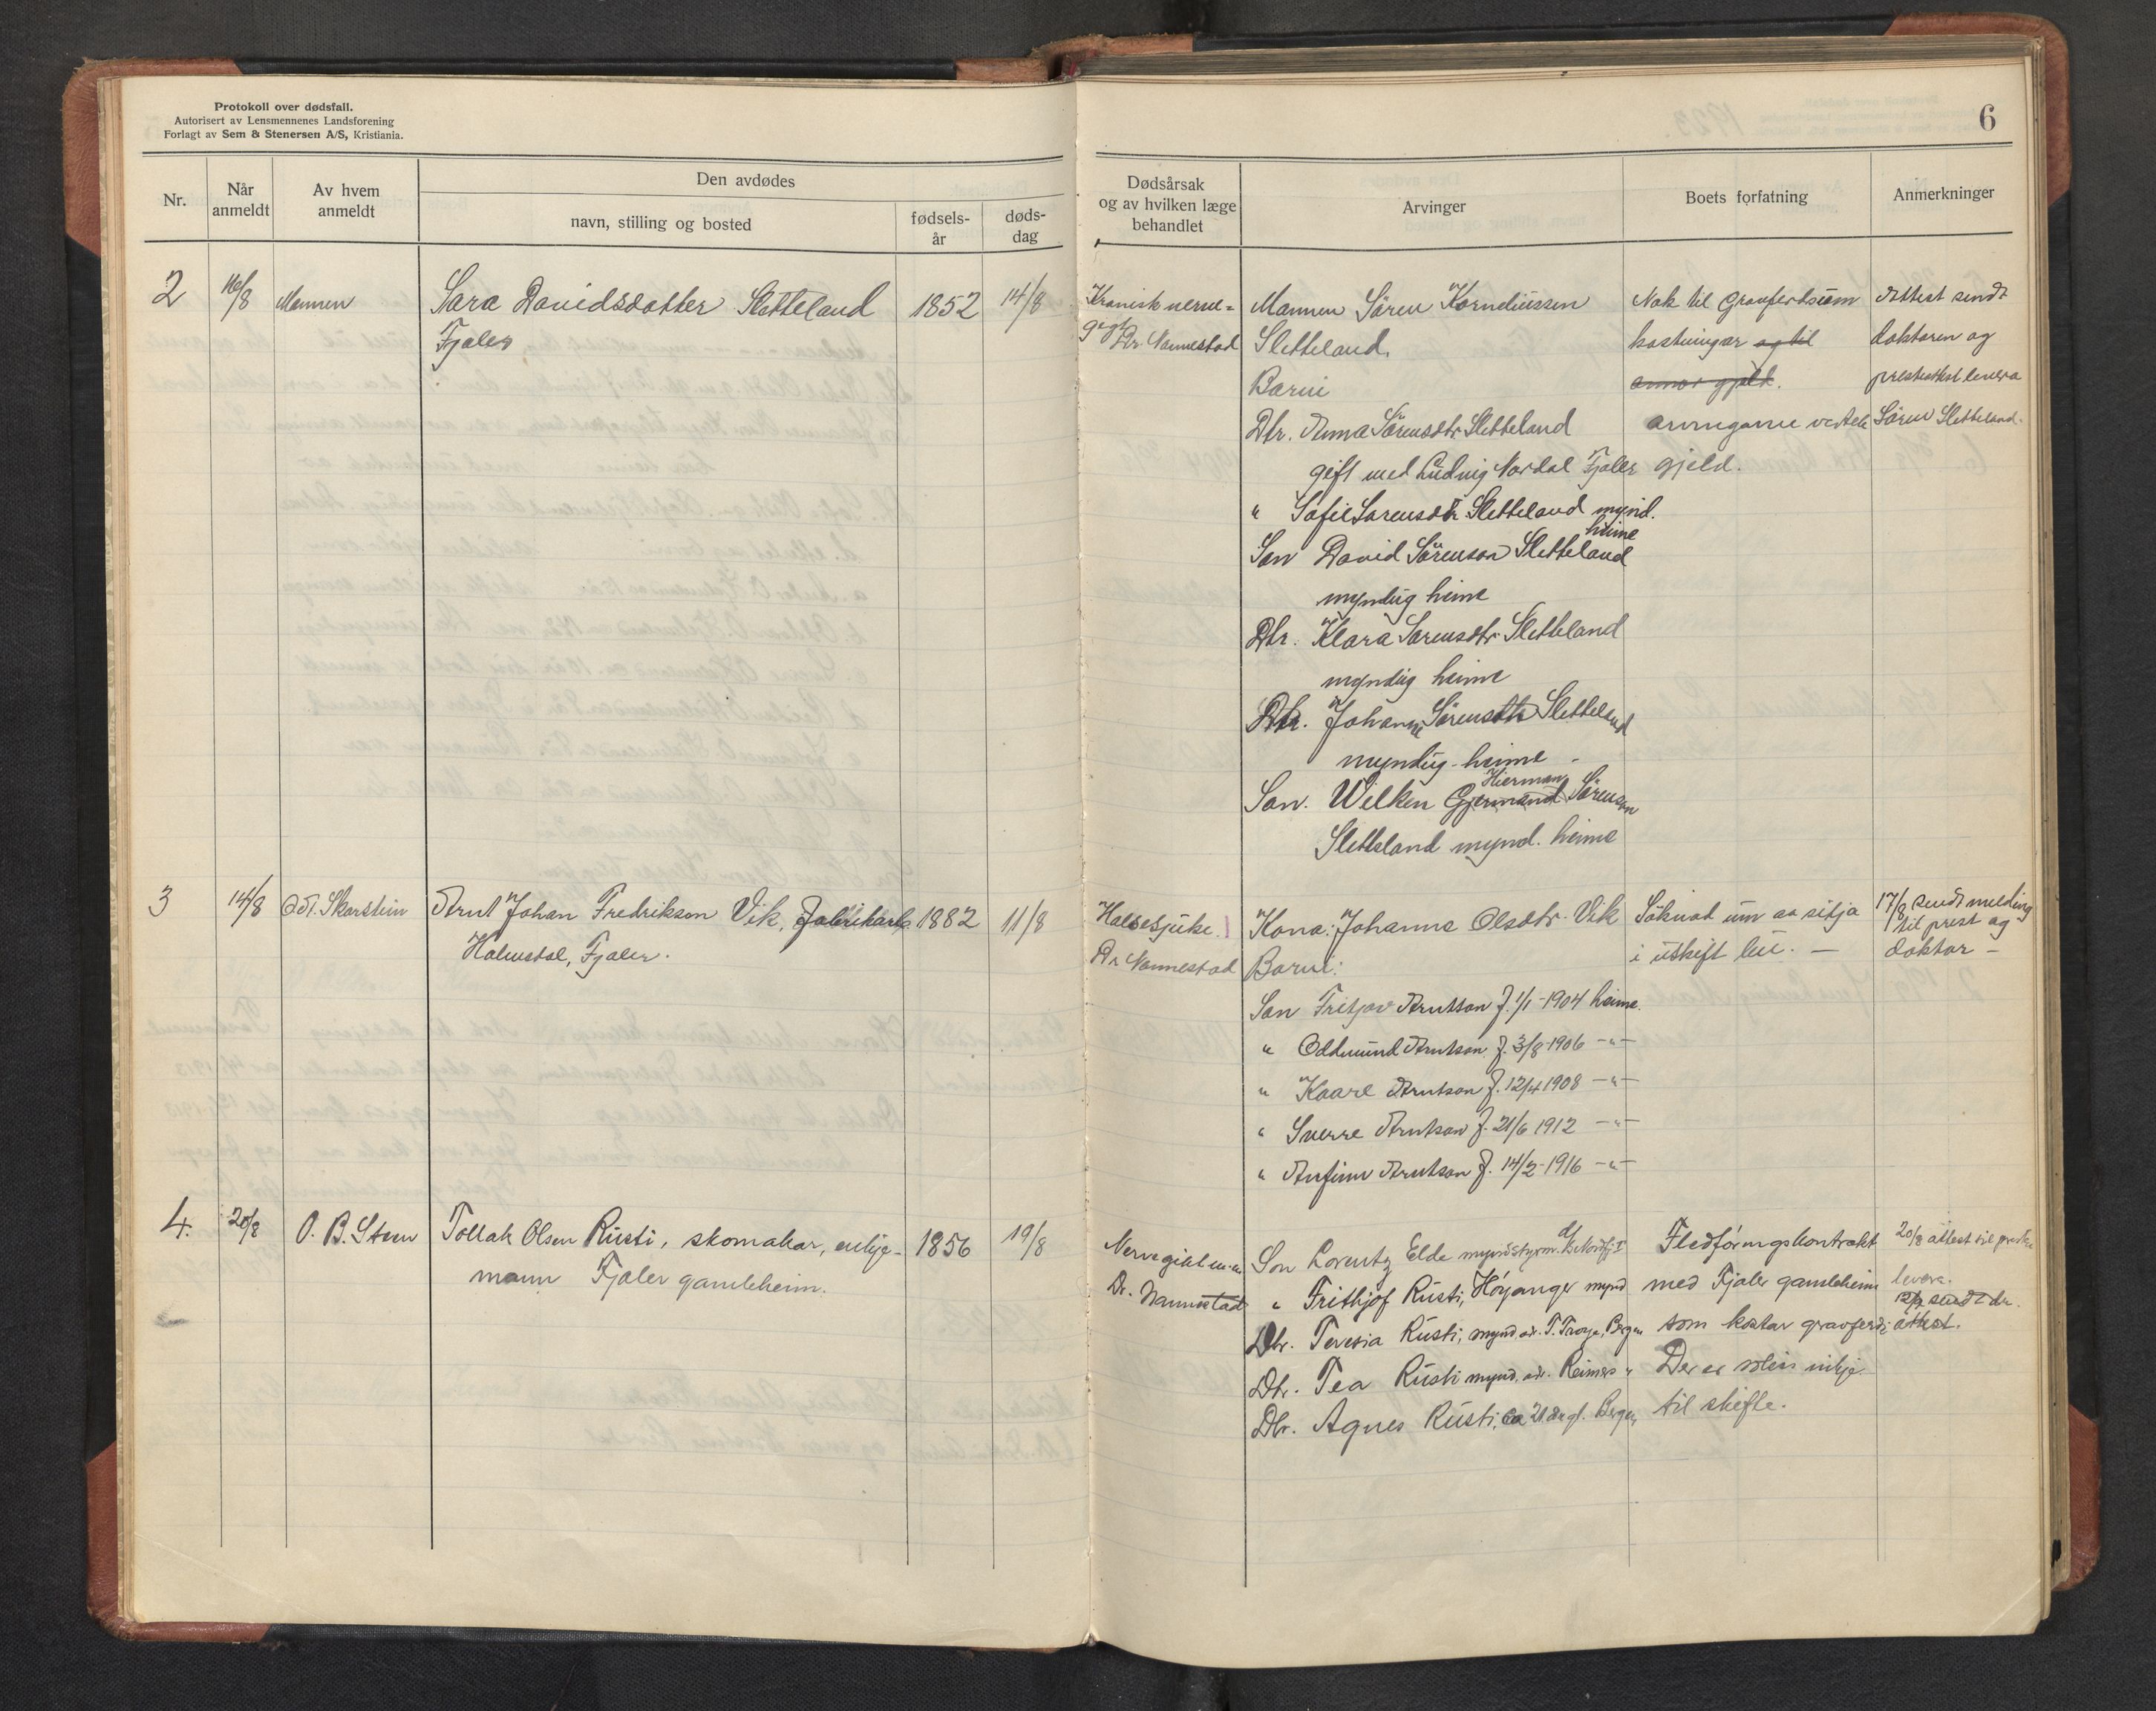 Protokoll over dødsfall.
Autorisert av Lensmennenes Landsforening
Forlagt av Sem & Stenersen A/S, Kristiania.
6
Nr.
Når anmeldt
Av hvem anmeldt
Den avdødes
navn, stilling og bosted
fødsels-år
døds-dag
Dødsårsak og av hvilken læge behandlet
Arvinger
Boets forfatning
Anmerkninger
2
16/8
Mannen
Sara Davidsdatter Sletteland
Fjaler
1852
14/8
Kronisk nerve-
gigt
Dr. Nannestad
Mannen Sören Korneliussen
Sletteland.
Barn
Dtr. Anna Sörensdtr Sletteland
gift med Ludvig Nordal Fjaler
" Sofie Sörensdtr Sletteland mynd.
heime
Son David Sörenson Sletteland
myndug heime
Dtr. Klara Sörensdtr Sletteland
myndug heime
Dtr. Johanne Sörensdtr Sletteland
myndug - heime -
Hierman
Son. Wilken Gjermand Sörenson
Sletteland mynd. heime
Nok til Gravferdsum
kostningar og til
annor gjeld.
arvingarne vedtek
gjeld.
Attest sendt
doktoren og
prestattest levera
Sören Sletteland.
3
14/8
Skarstein
Arnt Johan Fredrikson Vik,
Holmedal, Fjaler.
1882
11/8
Halsesjuke.
Dr Nannestad
Kona: Johanna Olsdtr. Vik
Barn:
Son Fritjov Arntson f. 1/1-1904 heime.
" Odmund Arntson f. 3/8-1906 -"-
" Kaare Arntson f. 12/4 1908 -"-
" Sverre Arntson f. 21/6 1912 -"-
" Anfinn Arntson f. 14/2-1916 -"-
Söknad um aa sitja
i uskift bu. -
17/8 sendt melding
til prest og
doktor -
4.
20/8
O. B. Steen
Tollak Olsen Rusti, skomakar, enkje-
mann Fjaler gamleheim.
1856
19/8
Nervegikt m.m.
Dr. Nannestad
Son Lorentz Elde mynd styrm.
" Frithjof Rusti, Høyanger mynd
Dtr. Teresia Rusti, mynd. adr. T. Troye, Bergen
Dtr. Tea Rusti mynd. adr. Reimers "
Dtr. Agnes Rusti, ca 21 år gl. Bergen
Fledføringskontrakt
med Fjaler gamleheim
som kostar gravferdi
Der er elles inkje
til skifte.
20/8 attest til prest
levera.
sendt dr.
attest.